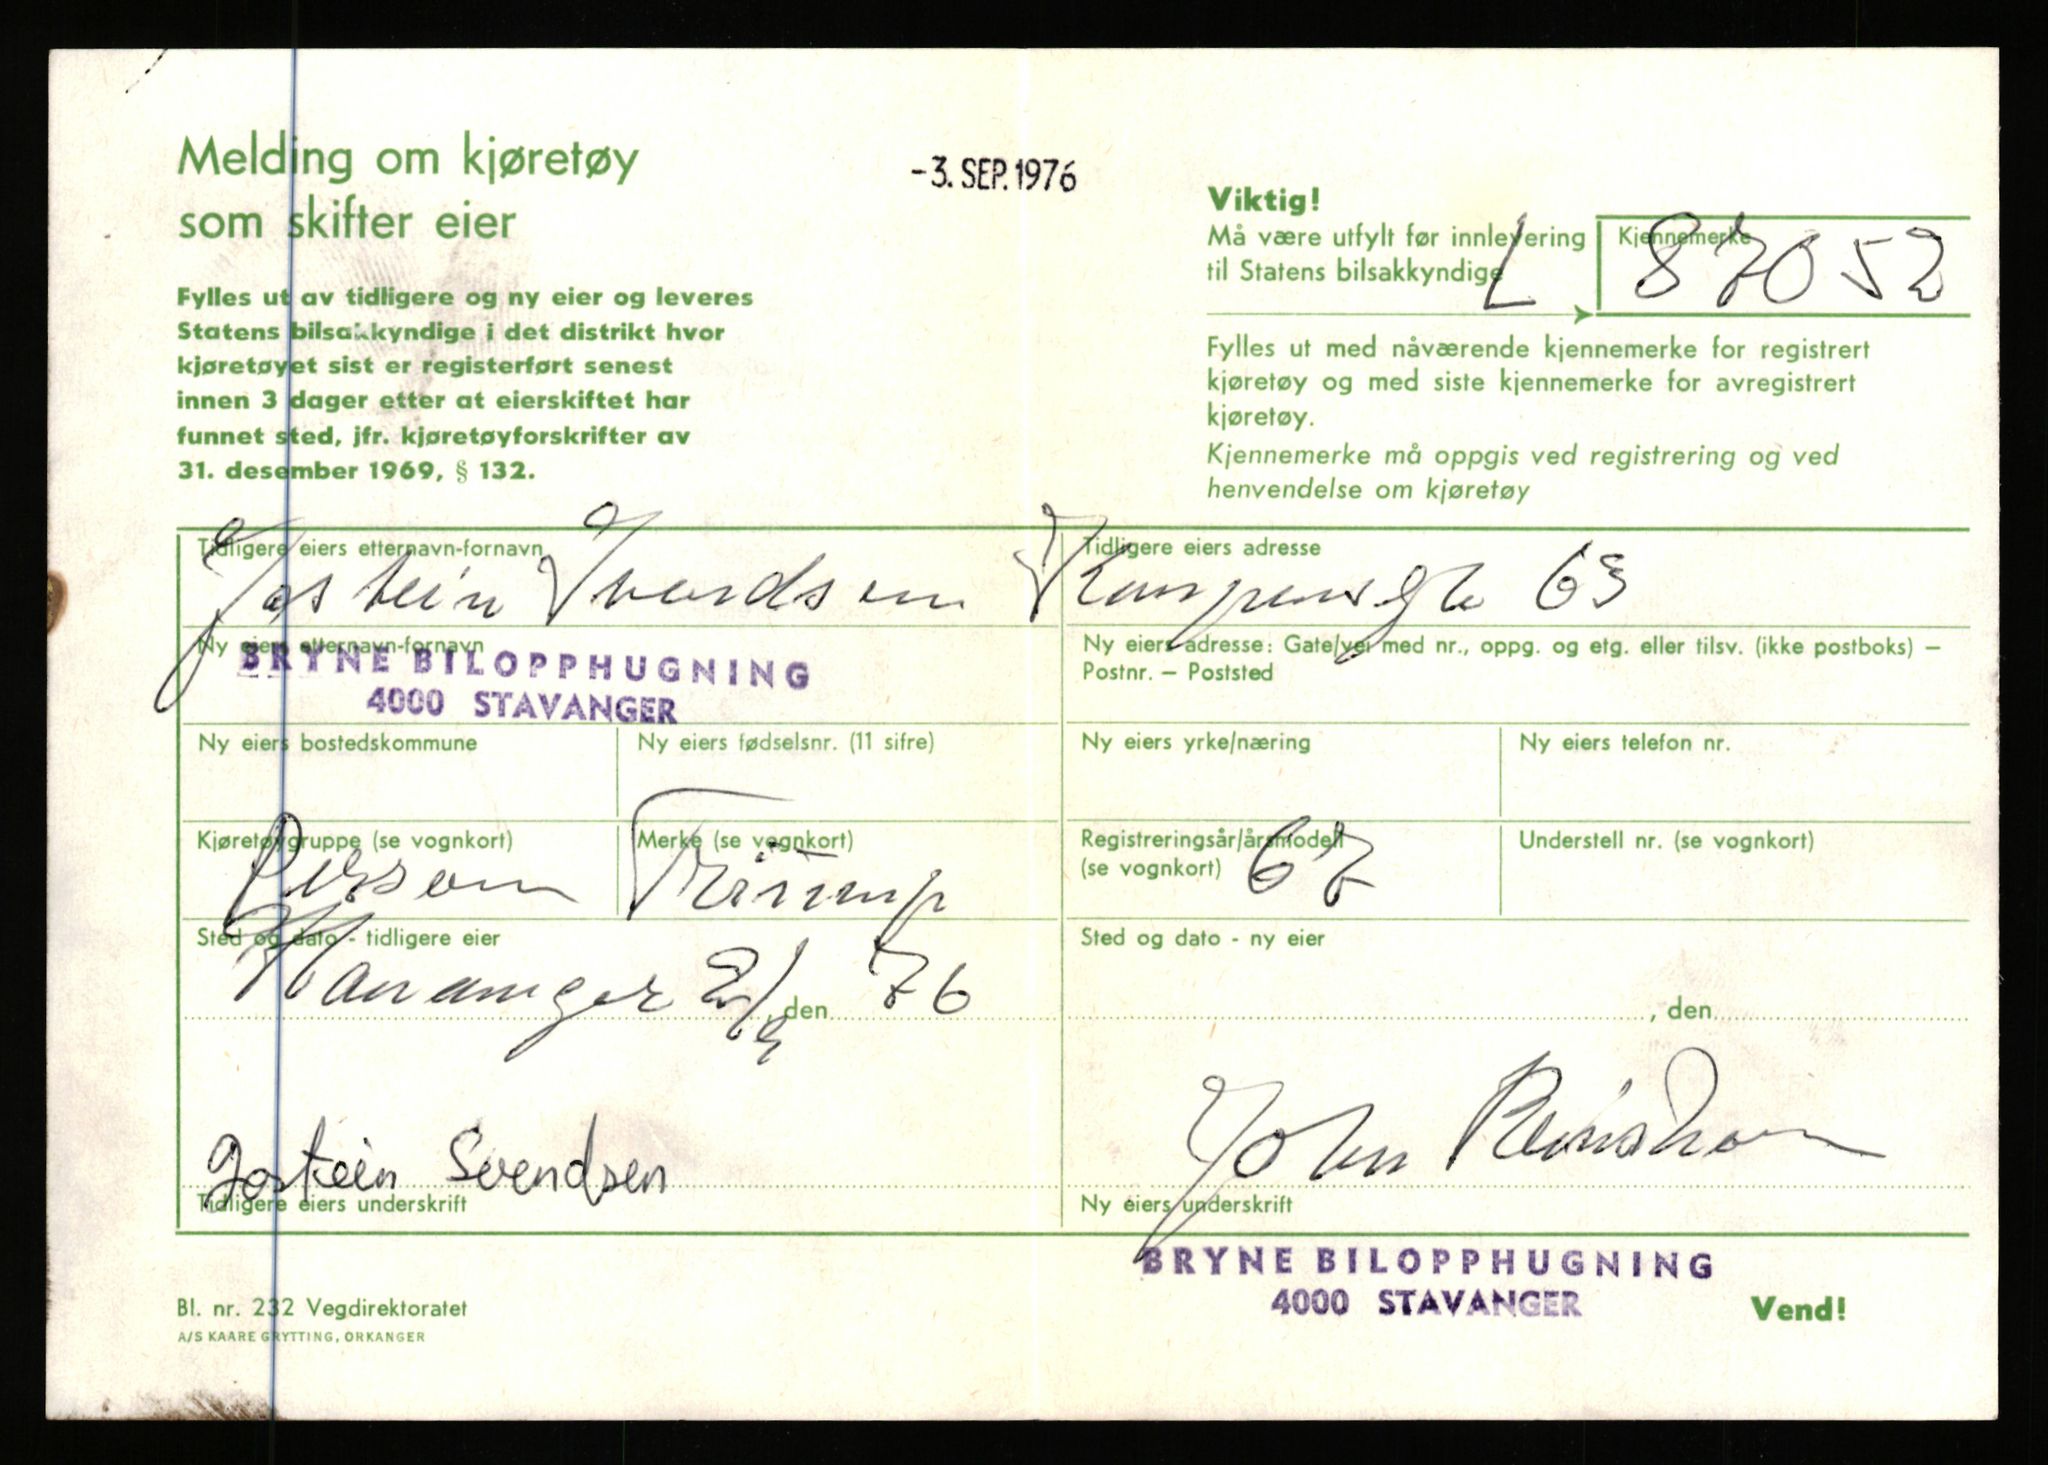 Melding om kjøretøy
som skifter eier
-3. SEP. 1976
Fylles ut av tidligere og ny eier og leveres
Statens bilsakkyndige i det distrikt hvor
kjøretøyet sist er registerført senest
innen 3 dager etter at eierskiftet har
funnet sted, jfr. kjøretøyforskrifter av
31. desember 1969, § 132.
Viktig!
Må være utfylt før innlevering
til Statens bilsakkyndige
Kjennemerke
L 87052
Fylles ut med nåværende kjennemerke for registrert
kjøretøy og med siste kjennemerke for avregistrert
kjøretøy.
Kjennemerke må oppgis ved registrering og ved
henvendelse om kjøretøy
Tidligere eiers etternavn-fornavn
Jostein
Tidligere eiers adresse
63
Ny eiers etternavn-fornavn
BRYNE BILOPPHUGNING
4000 STAVANGER
Ny eiers adresse: Gate/vei med nr., oppg. og etg. eller tilsv. (ikke postboks) –
Postnr. – Poststed
Ny eiers bostedskommune
Ny eiers fødselsnr. (11 sifre)
Ny eiers yrke/næring
Ny eiers telefon nr.
Kjøretøygruppe (se vognkort)
Person
Merke (se vognkort)
Triump
Registreringsår/årsmodell
(se vognkort)
67
Understell nr. (se vognkort)
Sted og dato - tidligere eier
2/9, den 76
Sted og dato - ny eier
, den
Jostein Svendsen
Tidligere eiers underskrift
John
Ny eiers underskrift
BRYNE BILOPPHUGNING
4000 STAVANGER
Bl. nr. 232 Vegdirektoratet
A/S KAARE GRYTTING, ORKANGER
Vend!